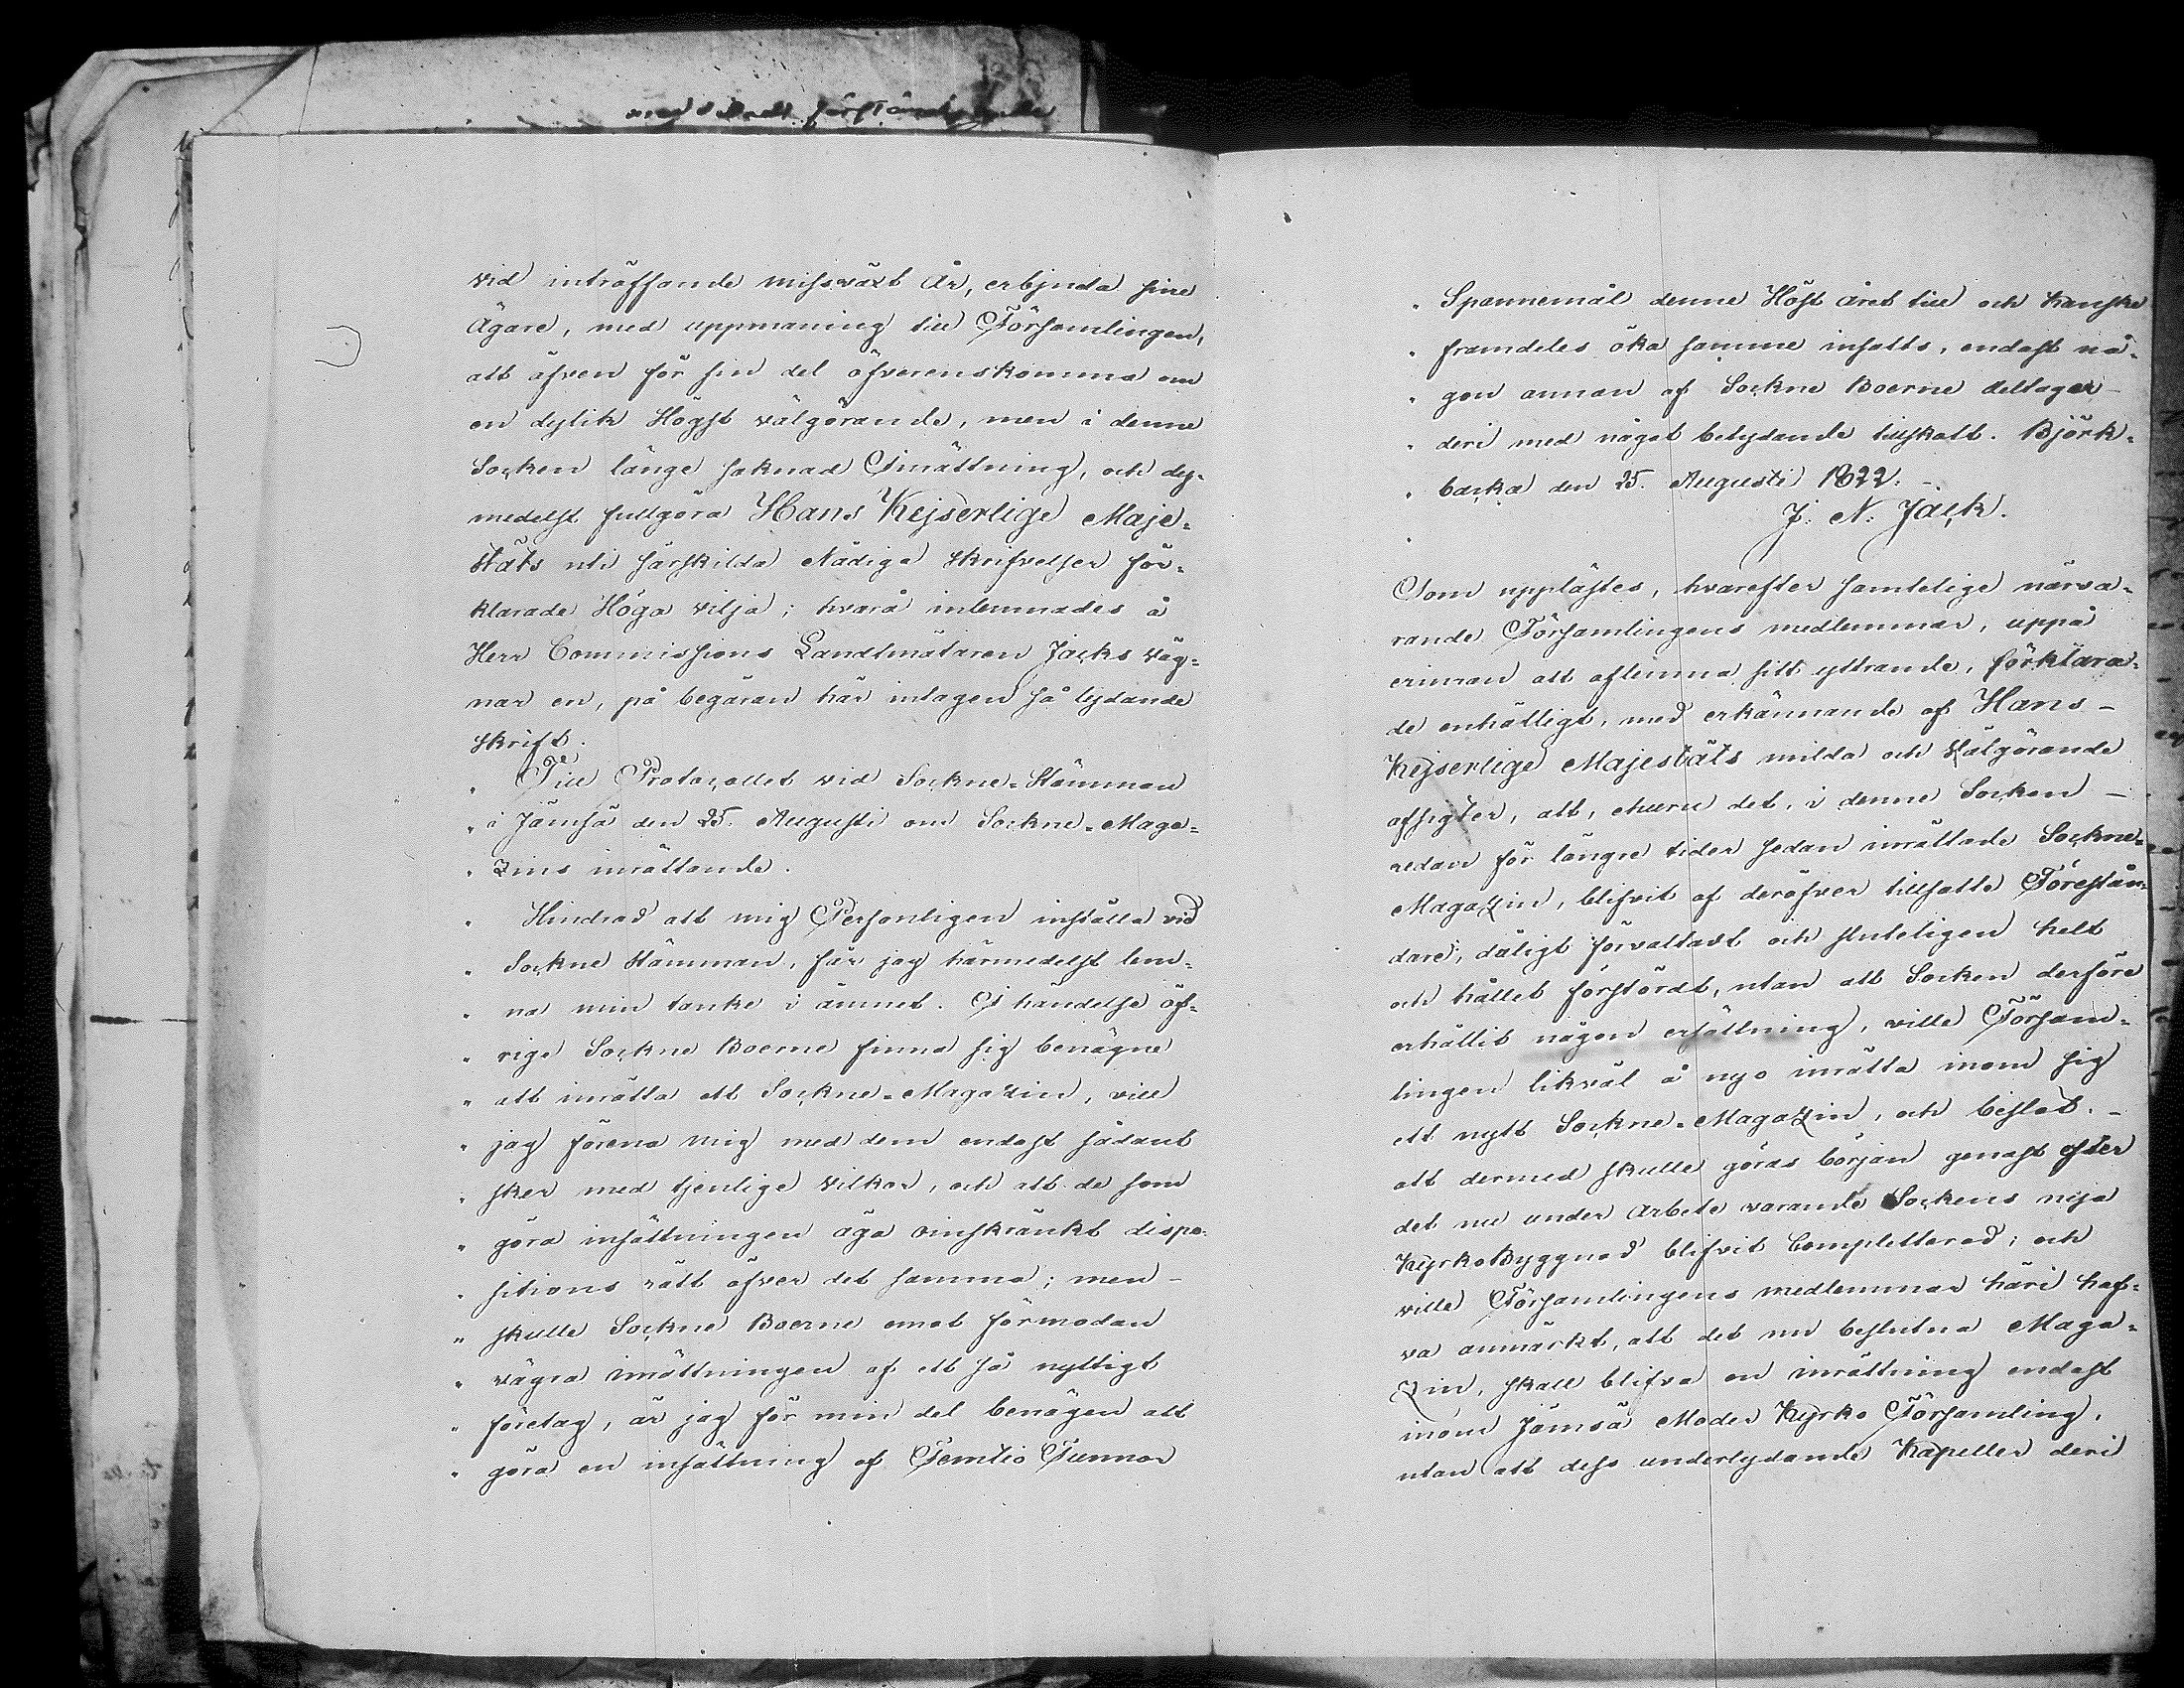 vid inträffande missväxt År, erbjuda sine
Ägare, med uppmaning till Församlingen,
att äfven för sin del öfverenskomma om
en dylik Högst välgörande, men i denne
Socken länge saknad Inrättning, och dy-
medelst fullgöra Hans Kejserlige Maje-
stäts uti särskilda Nådiga skrifvelser för-
klarade Höga vilja; hvarå inlemnades å
Herr Commissions Landtmätaren Jacks väg-
nar en, på begäran här intagen så lydande
skrift.
" Till Protocollet vid Sockne-Stämman
" i Jämsä den 25. Augusti om Sockne-Maga-
" Zins inrättande.
" Hindrad att mig Personligen inställa vid
" Sockne Stämman, får jag härmedelst lem-
" na min tanke i ämnet. I händelse öf-
" rige Sockne Boerne finna sig benägne
" att inrätta ett Sockne-Magazin, vill
" jag förena mig med dem endast sådant
" sker med tjenlige vilkor, och att de som
" göra insättningen äga oinskränkt dispo-
" sitions rätt öfver det samma; men -
" skulle Sockne Boerne emot förmodan
" vägra inrättningen af ett så nyttigt
" företag, är jag för min del benägen att
" göra en insättning af Femtio Tunnor
" Spannemål denne Höst året till och kanske
" framdeles öka samme insatts, endast nå-
" gon annan af Sockne Boerne deltager -
" deri med något betydande tillskott. Björk-
" backa den 25. Augusti 1822. -
" J. N. Jack.
Som upplästes, hvarefter samtelige närva-
rande Församlingens medlemmar, uppå
erinran att aflemna sitt yttrande, förklara-
de enhälligt, med erkännande af Hans -
Kejserlige Majestäts milda och Välgörande
afsigter, att, ehuru det, i denne Socken -
redan för längre tider sedan inrättade Sockne-
Magazin, blifvit af deröfver tillsatte Förestån-
dare, dåligt förvaltadt och sluteligen helt
och hållet förstördt, utan att Socken derföre
erhållit någon ersättning, ville Församm-
lingen likväl å nyo inrätta inom sig
ett nytt Sockne-Magazin, och beslöt. -
att dermed skulle göras början genast efter
det nu under Arbete varande Sockens nya
KyrkoByggnad blifvit Completterad; och
ville Församlingens medlemmar häri haf-
va anmärkt, att det nu beslutna Maga-
Zin, skall blifva en inrättning endast
inom Jämsä Moder Kyrko Församling,
utan att dess underlydande Kapeller deri